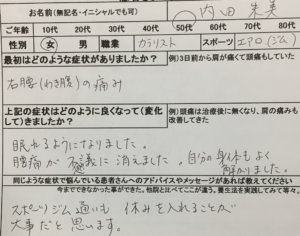 お名前(無記名・イニシャルでも可) 内田 朱美
ご年齢 10代 20代 30代 40代 50代 60代 70代 80代
性別 女 男 職業 カラリスト スポーツ エアロ(ジム)
最初はどのような症状がありましたか? 例)3日前から肩が痛くて頭痛もしていた
右腰(わき腹)の痛み
上記の症状はどのように良くなって(変化して)きましたか? 例)頭痛は治療後に無くなり、肩の痛みも改善してきた
眠れるようになりました。
腰痛が不思議に消えました。自分の身体もよく
解かりました。
同じような症状で悩んでいる患者さんへのアドバイスやメッセージがあれば教えてください
今までできなかった事ができた。他院と比べてここが違う。養生法を実践してみて等々。
スポーツジム通いも 休みを入れることが
大事だと思います。